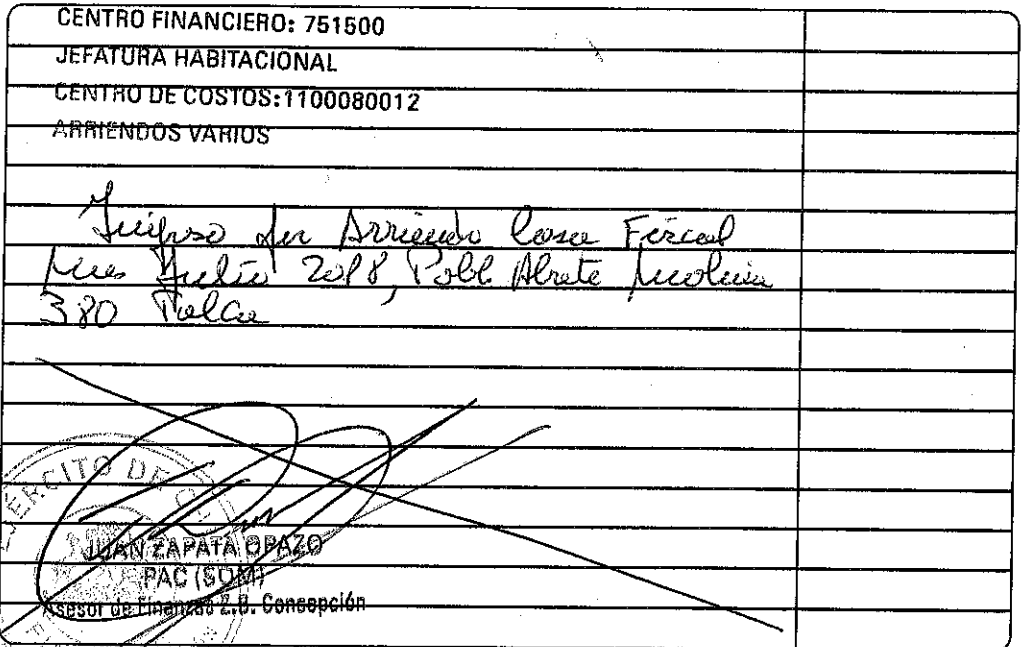 CENTRO FINANCIERO: 751500
JEFATURA HABITACIONAL
CENTRO DE COSTOS:1100080012
ARRIENDOS VARIOS
Ingreso por Arriendo Casa Fiscal
Mes Julio 2018, Pobl Abate Molina
380 Talca
EJERCITO DE
JUAN ZAPATA OPAZO
PAC (SOM)
Asesor de Finanzas Z.B. Concepción